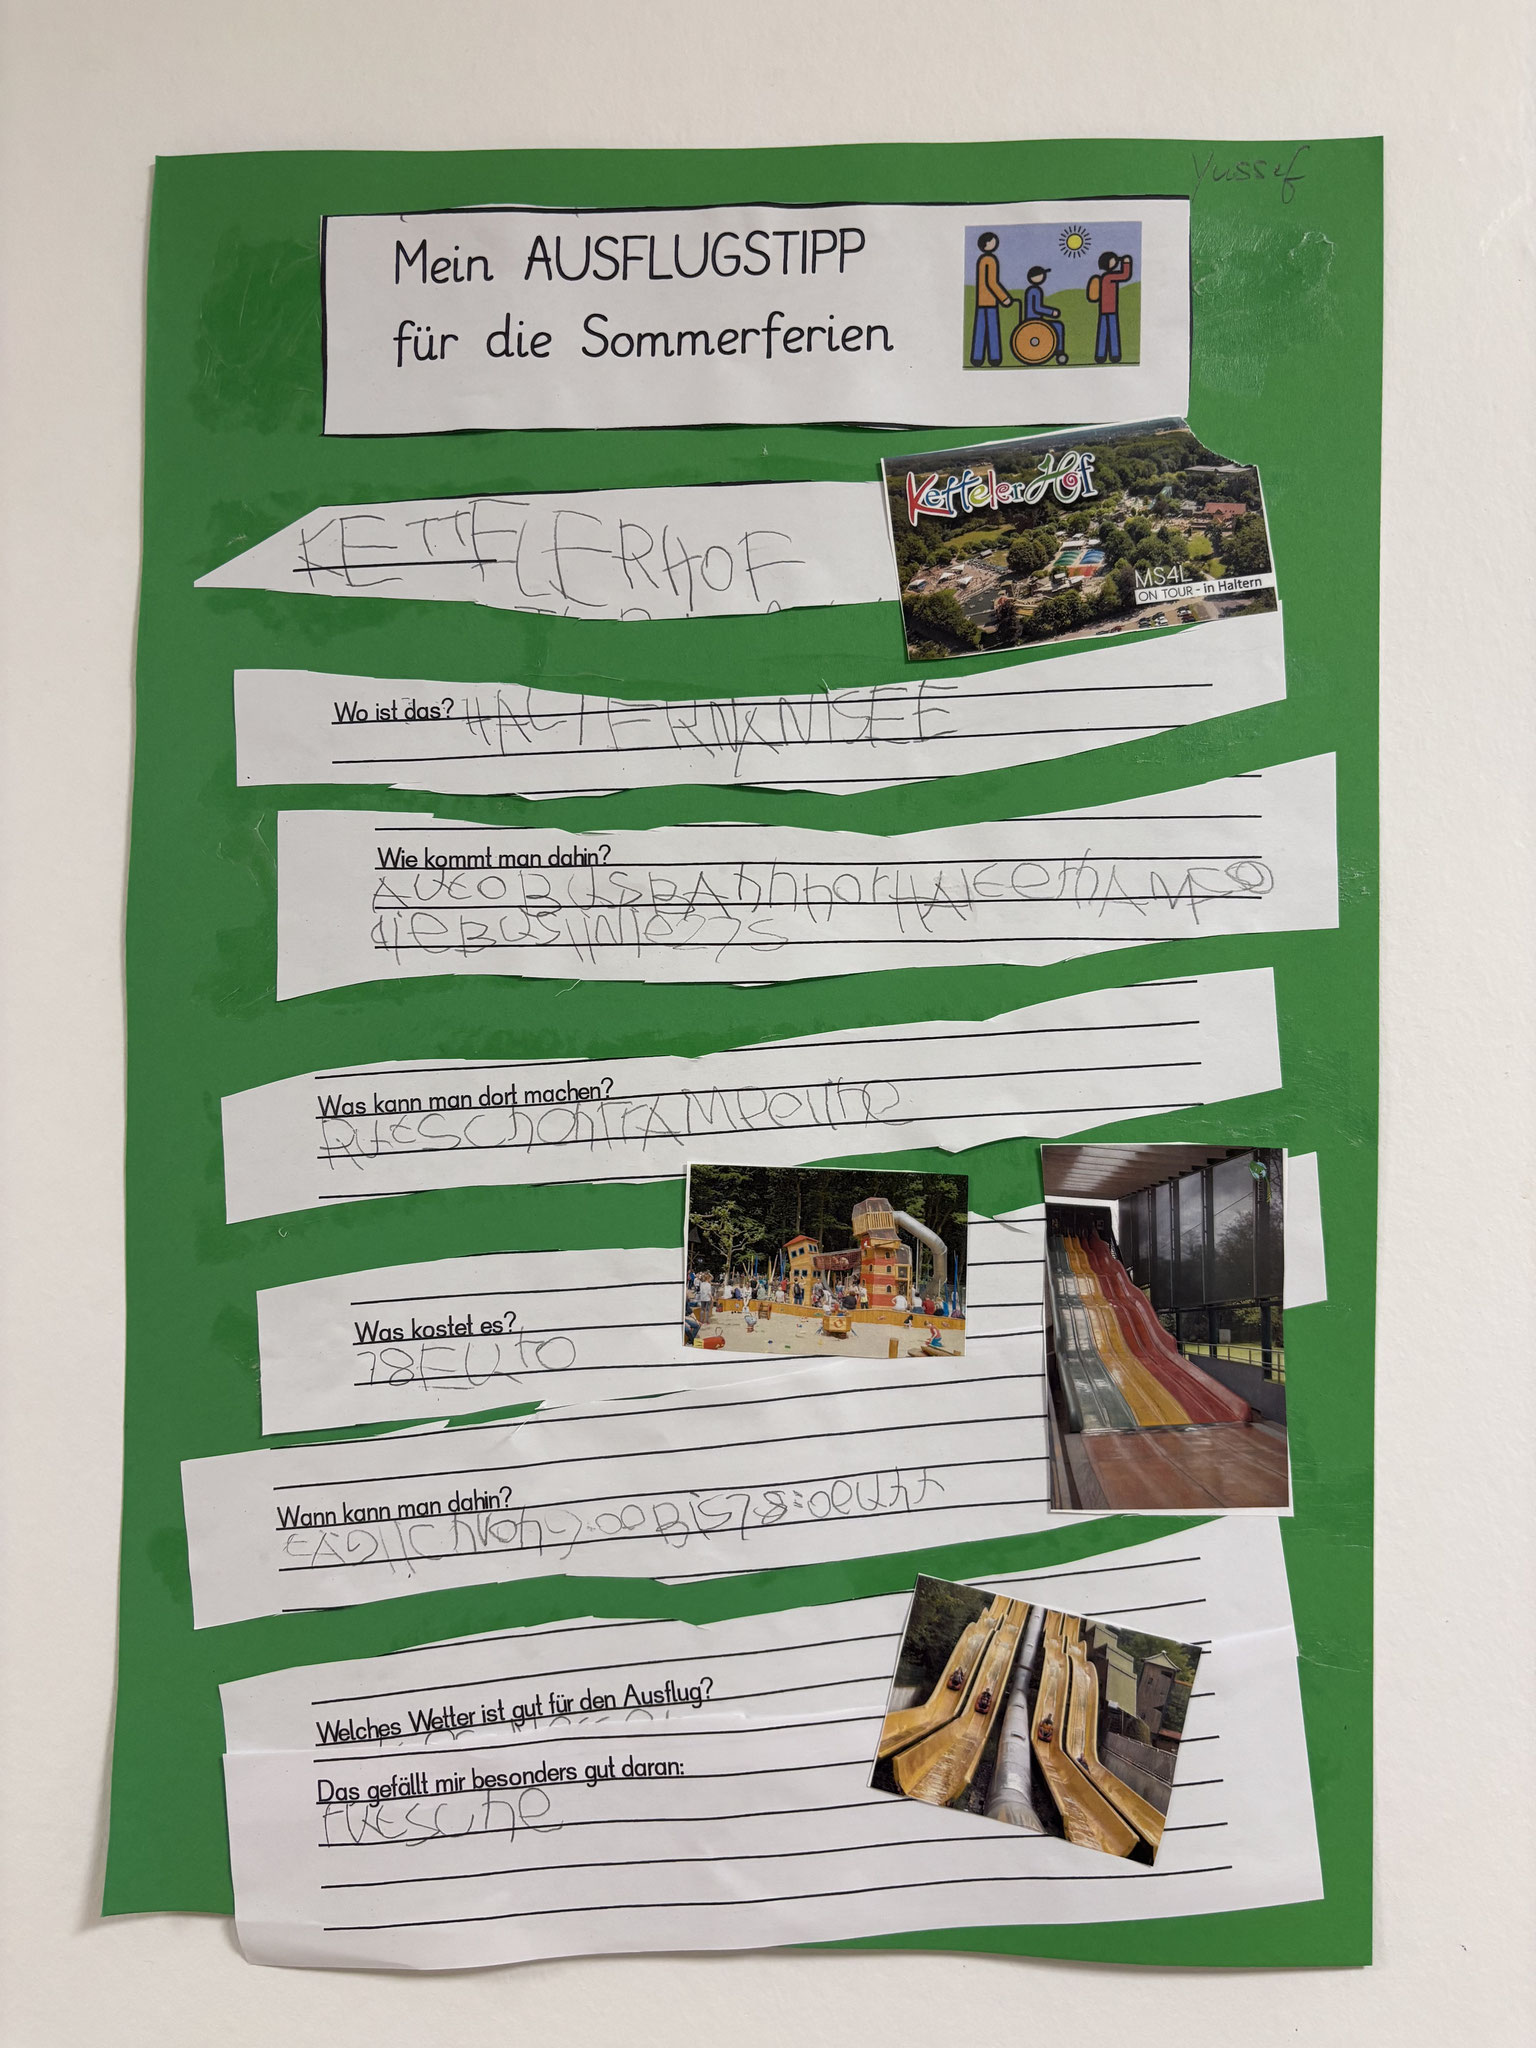 Yussef
Mein AUSFLUGSTIPP
für die Sommerferien
KETTELERHOF
Ketteler Hof
MS4L
ON TOUR - in Haltern
Wo ist das? HALTERNAMSEE
Wie kommt man dahin?
AUtOBUSBAhnhof HALterNAM
dieBUSliNie275
Was kann man dort machen?
RUtSChenTRAMPeliNe
Was kostet es?
18EURO
Wann kann man dahin?
tÄGliChVON9:00BiS18:00Uhr
Welches Wetter ist gut für den Ausflug?
Das gefällt mir besonders gut daran:
rUtSChe